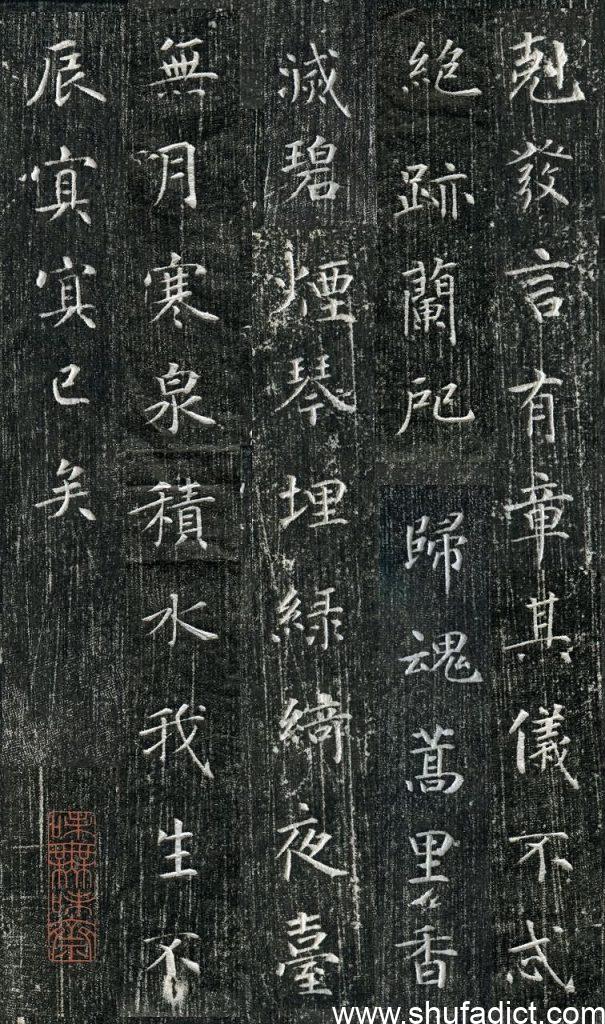 尅發言有章其儀不忒
絕跡蘭戺歸魂蒿里香
滅碧煙琴埋緑綺夜臺
無月寒泉積水我生不
辰㝠㝠已矣
味無味齋
www.shufadict.com